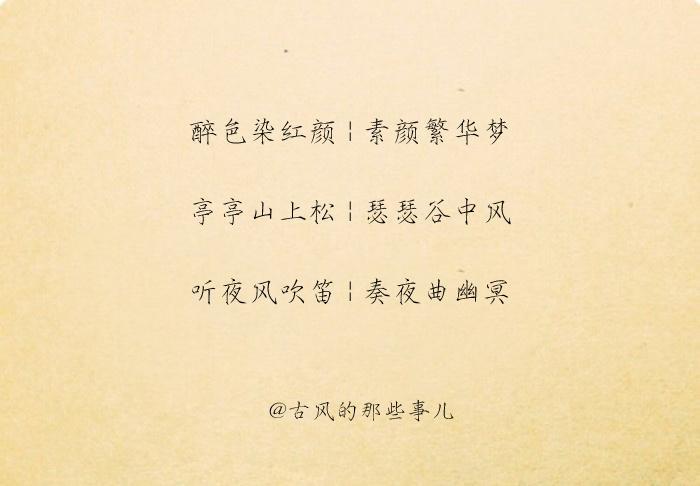 醉色染红颜 | 素颜繁华梦
亭亭山上松 | 瑟瑟谷中风
听夜风吹笛 | 奏夜曲幽冥
@古风的那些事儿